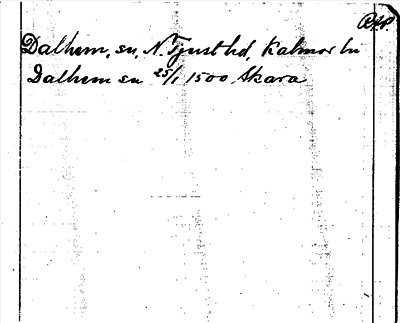 Dalhem, sn, N. Tjust hd, Kalmar ln
Dalhem sn 25/1 1500 Skara